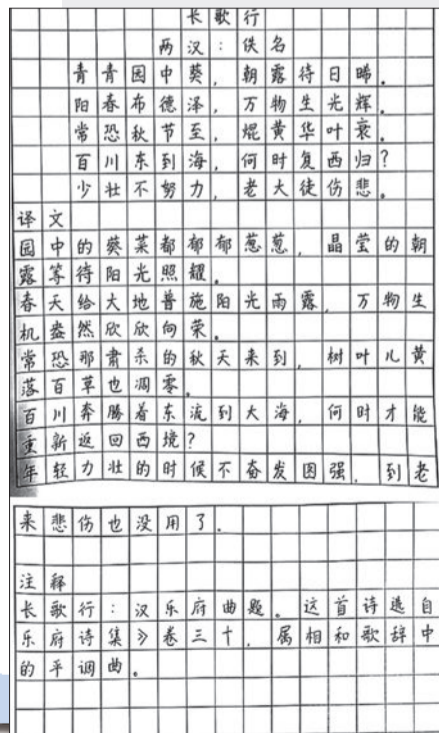 长歌行
两汉：佚名
青青园中葵，朝露待日晞。
阳春布德泽，万物生光辉。
常恐秋节至，焜黄华叶衰。
百川东到海，何时复西归？
少壮不努力，老大徒伤悲。
译文
园中的葵菜都郁郁葱葱，晶莹的朝
露等待阳光照耀。
春天给大地普施阳光雨露，万物生
机盎然欣欣向荣。
常恐那肃杀的秋天来到，树叶儿黄
落百草也凋零。
百川奔腾着东流到大海，何时才能
重新返回西境？
年轻力壮的时候不奋发图强，到老
来悲伤也没用了。
注释
长歌行：汉乐府曲题。这首诗选自
乐府诗集》卷三十，属相和歌辞中
的平调曲。